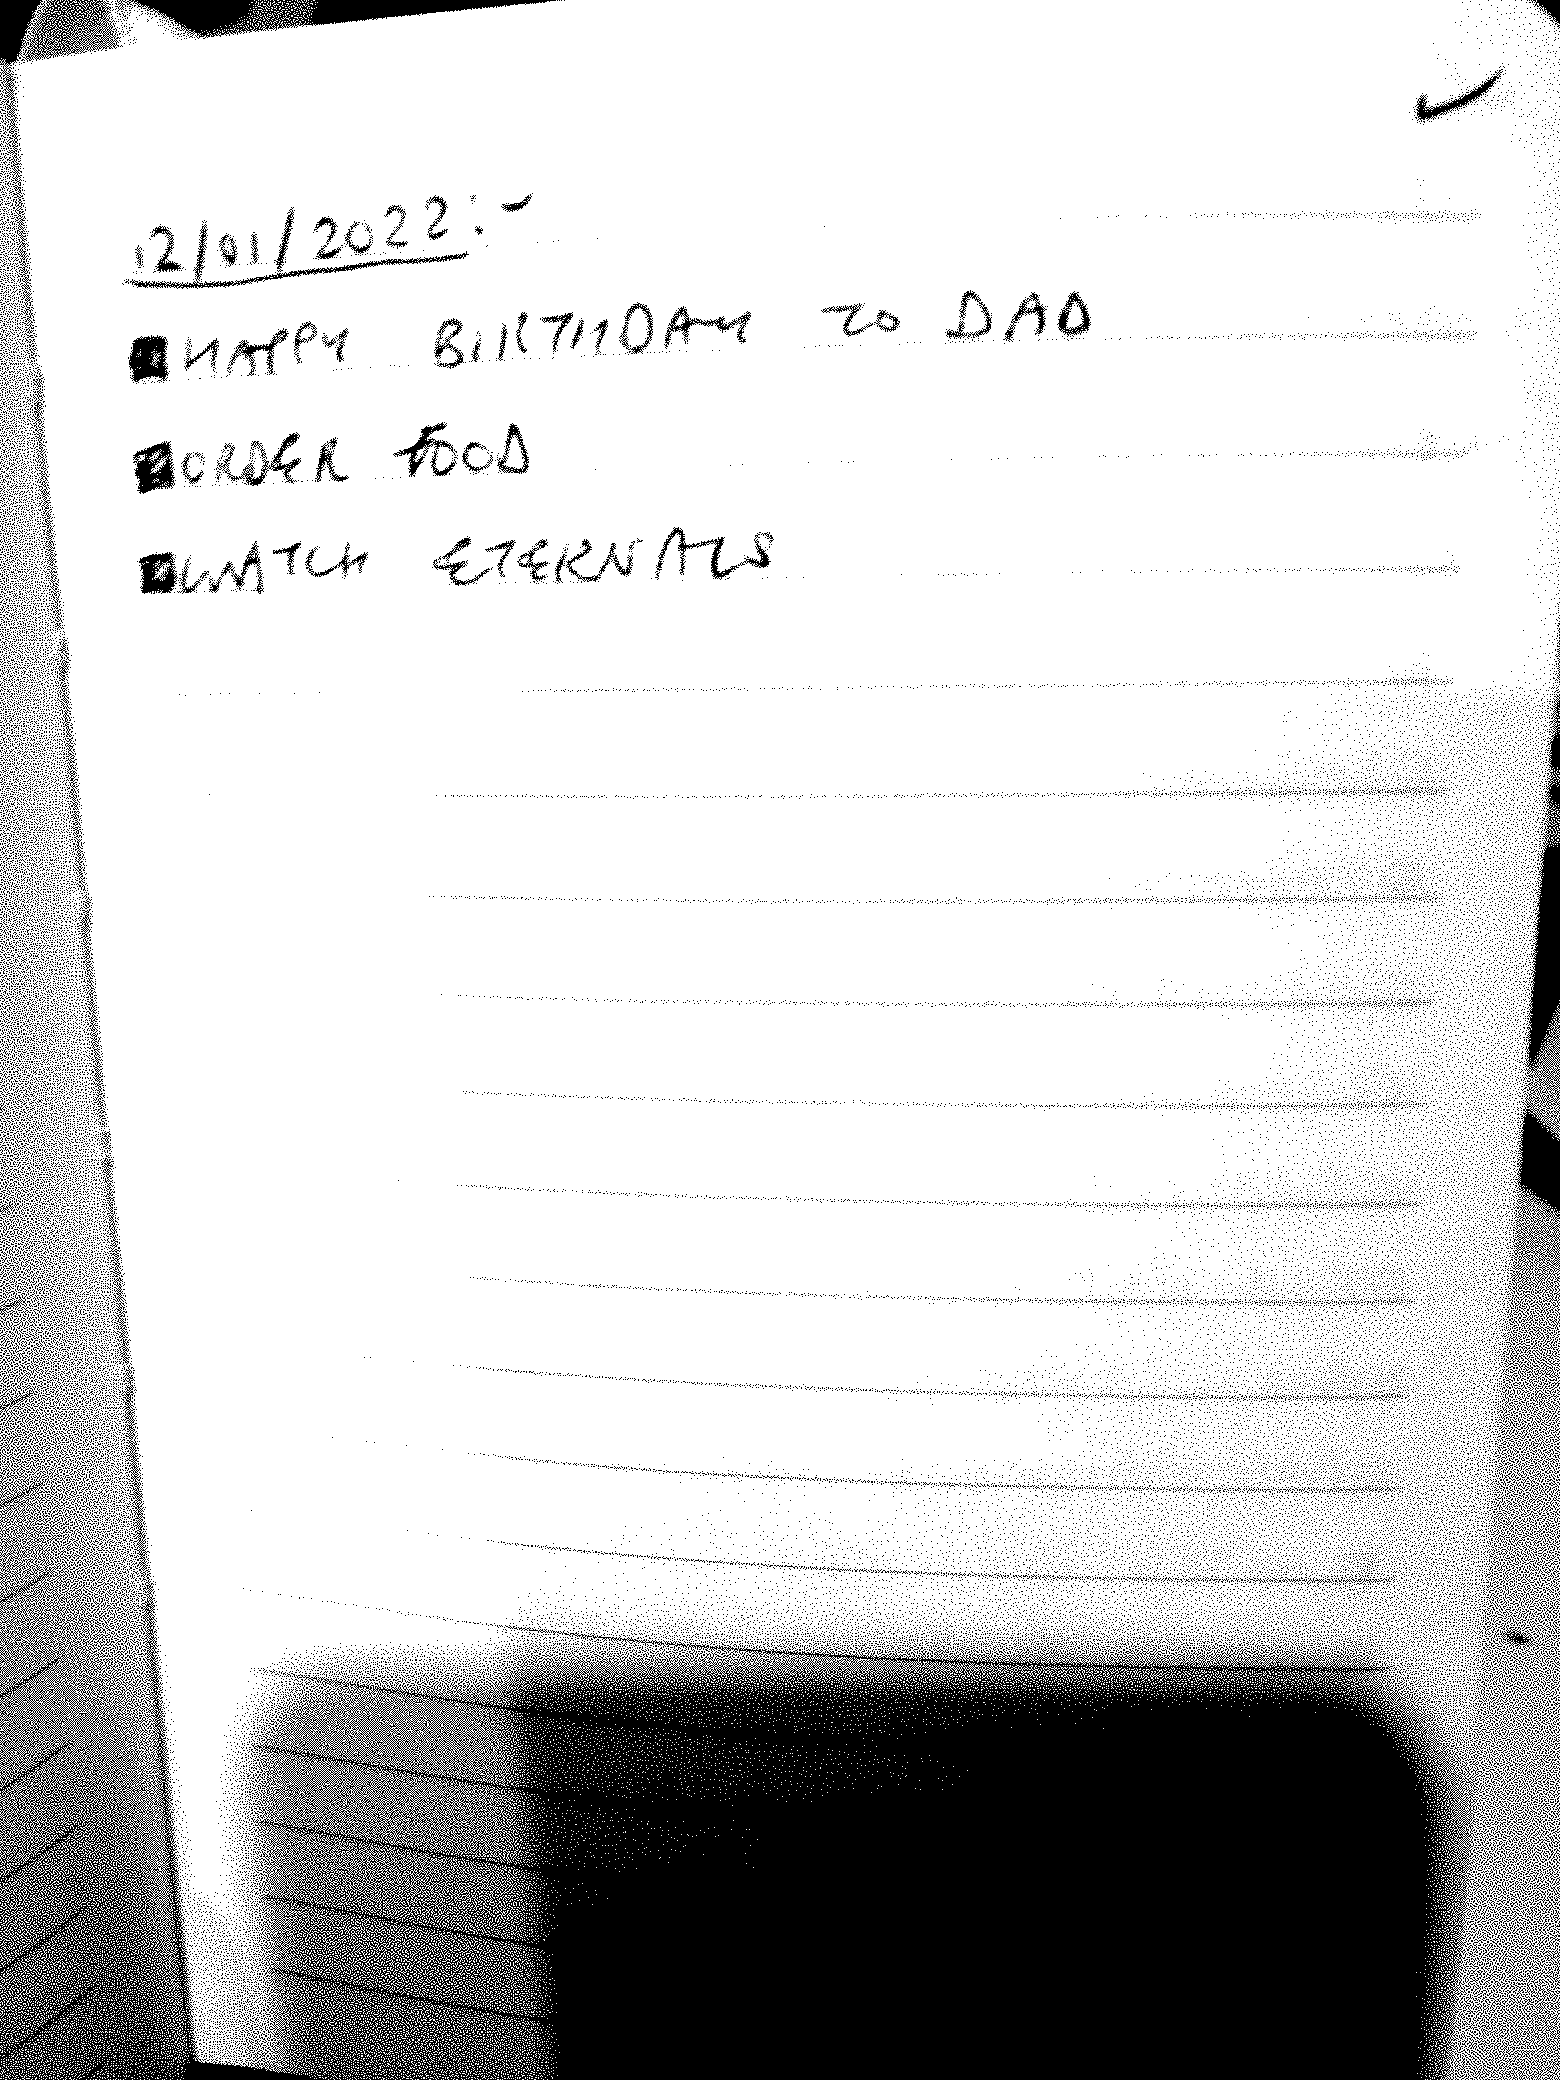 12/01/2022:-
HAPPY BIRTHDAY TO DAD
ORDER FOOD
WATCH ETERNALS